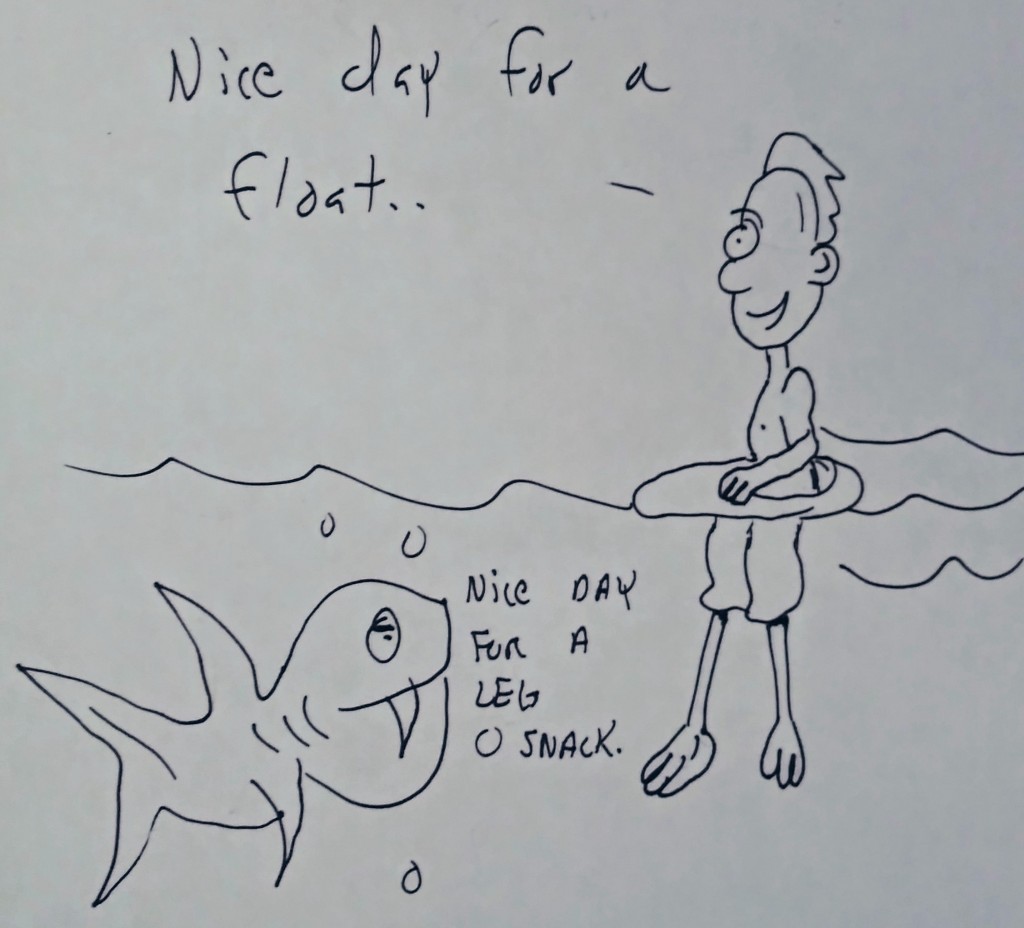 Nice day for a
float..
Nice DAY
FOR A
LEG
O SNACK.